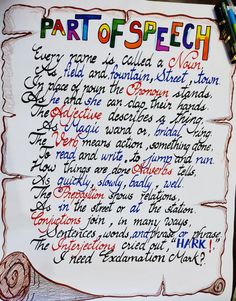 PART OF SPEECH
Every name is called a Noun,
As field and fountain, Street, town.
In place of noun the Pronoun stands.
As he and she can clap their hands.
The Adjective describes a thing,
As Magic wand or, bridal ring.
The Verb means action, something done,
To read and write, to jump and run.
How things are done Adverbs tells,
As quickly, slowly, badly, well.
The Preposition shows relations,
As in the street or at the station.
Conjuctions join, in many ways,
Sentences, words, and phrase or phrase,
The Interjections cried out "HARK!"
I need Exclamation Mark?.